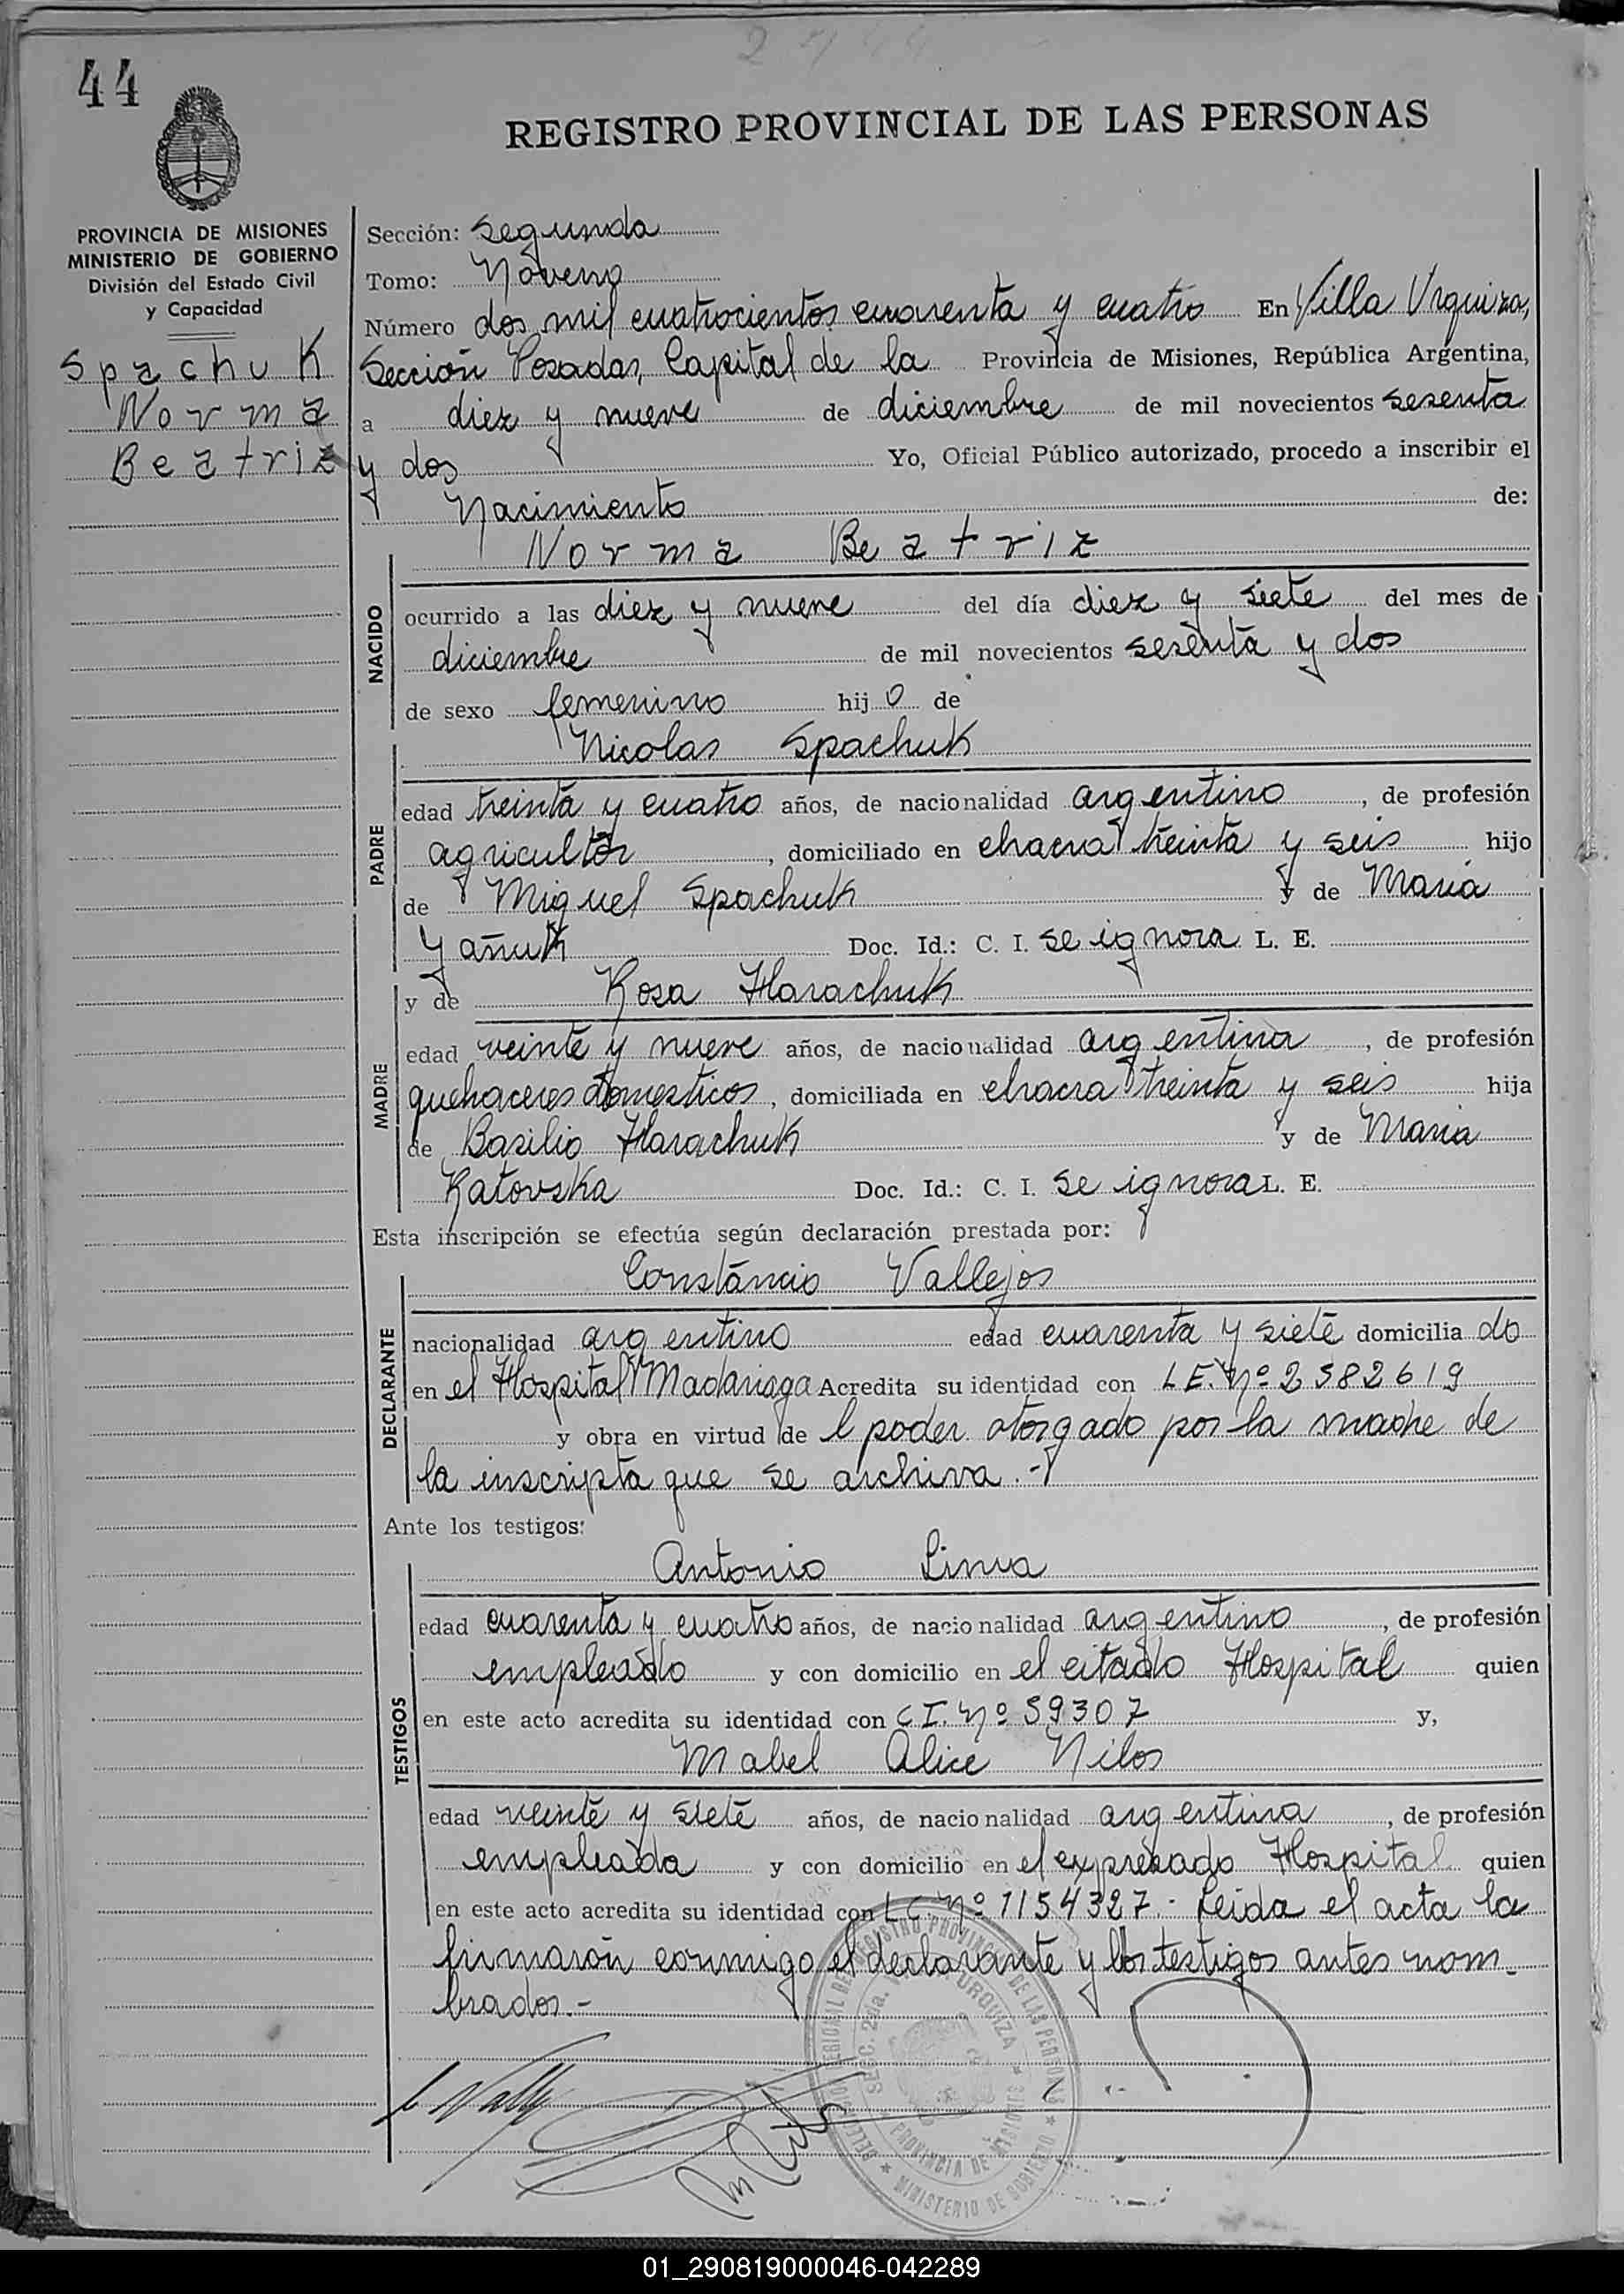 44
REGISTRO PROVINCIAL DE LAS PERSONAS
PROVINCIA DE MISIONES
MINISTERIO DE GOBIERNO
División del Estado Civil
y Capacidad
Spachuk
Norma
Beatriz
Sección: Segunda
Tomo: Noveno
Número dos mil cuatrocientos cuarenta y cuatro En Villa Urquiza,
Sección Posadas, Capital de la Provincia de Misiones, República Argentina,
a diez y nueve de diciembre de mil novecientos sesenta
y dos Yo, Oficial Público autorizado, procedo a inscribir el
Nacimiento de:
Norma Beatriz
NACIDO
ocurrido a las diez y nueve del día diez y siete del mes de
diciembre de mil novecientos sesenta y dos
de sexo femenino hijo de
Nicolas Spachuk
PADRE
edad treinta y cuatro años, de nacionalidad argentino, de profesión
agricultor, domiciliado en chacra treinta y seis hijo
de Miguel Spachuk y de Maria
Yañuk Doc. Id.: C. I. se ignora L. E.
y de Rosa Harachuk
MADRE
edad veinte y nueve años, de nacionalidad argentina, de profesión
quehaceres domesticos, domiciliada en chacra treinta y seis hija
de Basilio Harachuk y de Maria
Katovska Doc. Id.: C. I. se ignora L. E.
Esta inscripción se efectúa según declaración prestada por:
Constancio Vallejos
DECLARANTE
nacionalidad argentino edad cuarenta y siete domiciliado
en el Hospital Madariaga Acredita su identidad con L.E. Nº 2582619
y obra en virtud del poder otorgado por la madre de
la inscripta que se archiva.-
Ante los testigos:
Antonio
TESTIGOS
edad cuarenta y cuatro años, de nacionalidad argentino, de profesión
empleado y con domicilio en el citado Hospital quien
en este acto acredita su identidad con C.I. Nº 59307 y,
Mabel Alice Nilos
edad veinte y siete años, de nacionalidad argentina, de profesión
empleada y con domicilio en el expresado Hospital quien
en este acto acredita su identidad con L.C. Nº 1154327.- Leida el acta la
firmaron conmigo el declarante y los testigos antes nom-
brados.-
REGISTRO PROVINCIAL DE LAS PERSONAS
SECC. 2da. URQUIZA
PROVINCIA DE MISIONES
MINISTERIO DE GOBIERNO
01_290819000046-042289